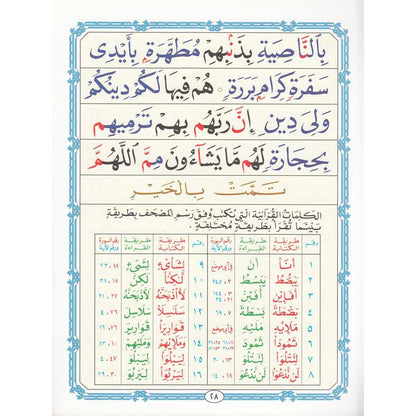 بِالنَّاصِيَةِ بِذَنْبِهِمْ مُطَهَّرَةٍ بِأَيْدِي
سَفَرَةٍ كِرَامٍ بَرَرَةٍ ۰ هُمْ فِيهَا لَكُمْ دِينُكُمْ
وَلِيَ دِينِ إِنَّ رَبَّهُمْ بِهِمْ تَرْمِيهِمْ
بِحِجَارَةٍ لَهُمْ مَا يَشَاءُونَ مِمَّ اللَّهُمَّ
تَمَّتْ بِالْخَيْرِ
الكلمات القرآنية التي تكتب وفق رسم المصحف بطريقة
بينما تقرأ بطريقة مختلفة.
رقم طريقة الكتابة طريقة القراءة رقم السورة ورقم الآية رقم طريقة الكتابة طريقة القراءة رقم السورة ورقم الآية
1 أَنَا أَنَ في أي موضع 9 لِشَايْءٍ لِشَيْءٍ ٢٣،١٨
2 يَبْصُطُ يَبْسُطُ 10 لَٰكِنَّا لَٰكِنَّ ٣٨،١٨
3 أَفَإِيْنْ أَفَئِنْ 11 لَأَاذْبَحَنَّهُ لَأَذْبَحَنَّهُ ٢١،٢٧
4 بَصْطَةً بَسْطَةً 12 سَلَاسِلَا سَلَاسِلَ ٤،٧٦
5 مَلَإِيْهِ مَلَئِهِ 13 قَوَارِيرَا قَوَارِيرَ
6 ثَمُودَا ثَمُودَ 14 وَمَلَإِيْهِمْ وَمَلَئِهِمْ
7 لِتَتْلُوَا لِتَتْلُوَ ٣٠،١٣ 15 لِيَبْلُوَا لِيَبْلُوَ ٤،٤٧
8 لَنْ نَدْعُوَا لَنْ نَدْعُوَ ١٤،١٨ 16 لِيَرْبُوَا لِيَرْبُوَ ٣٩،٣٠
٢٨